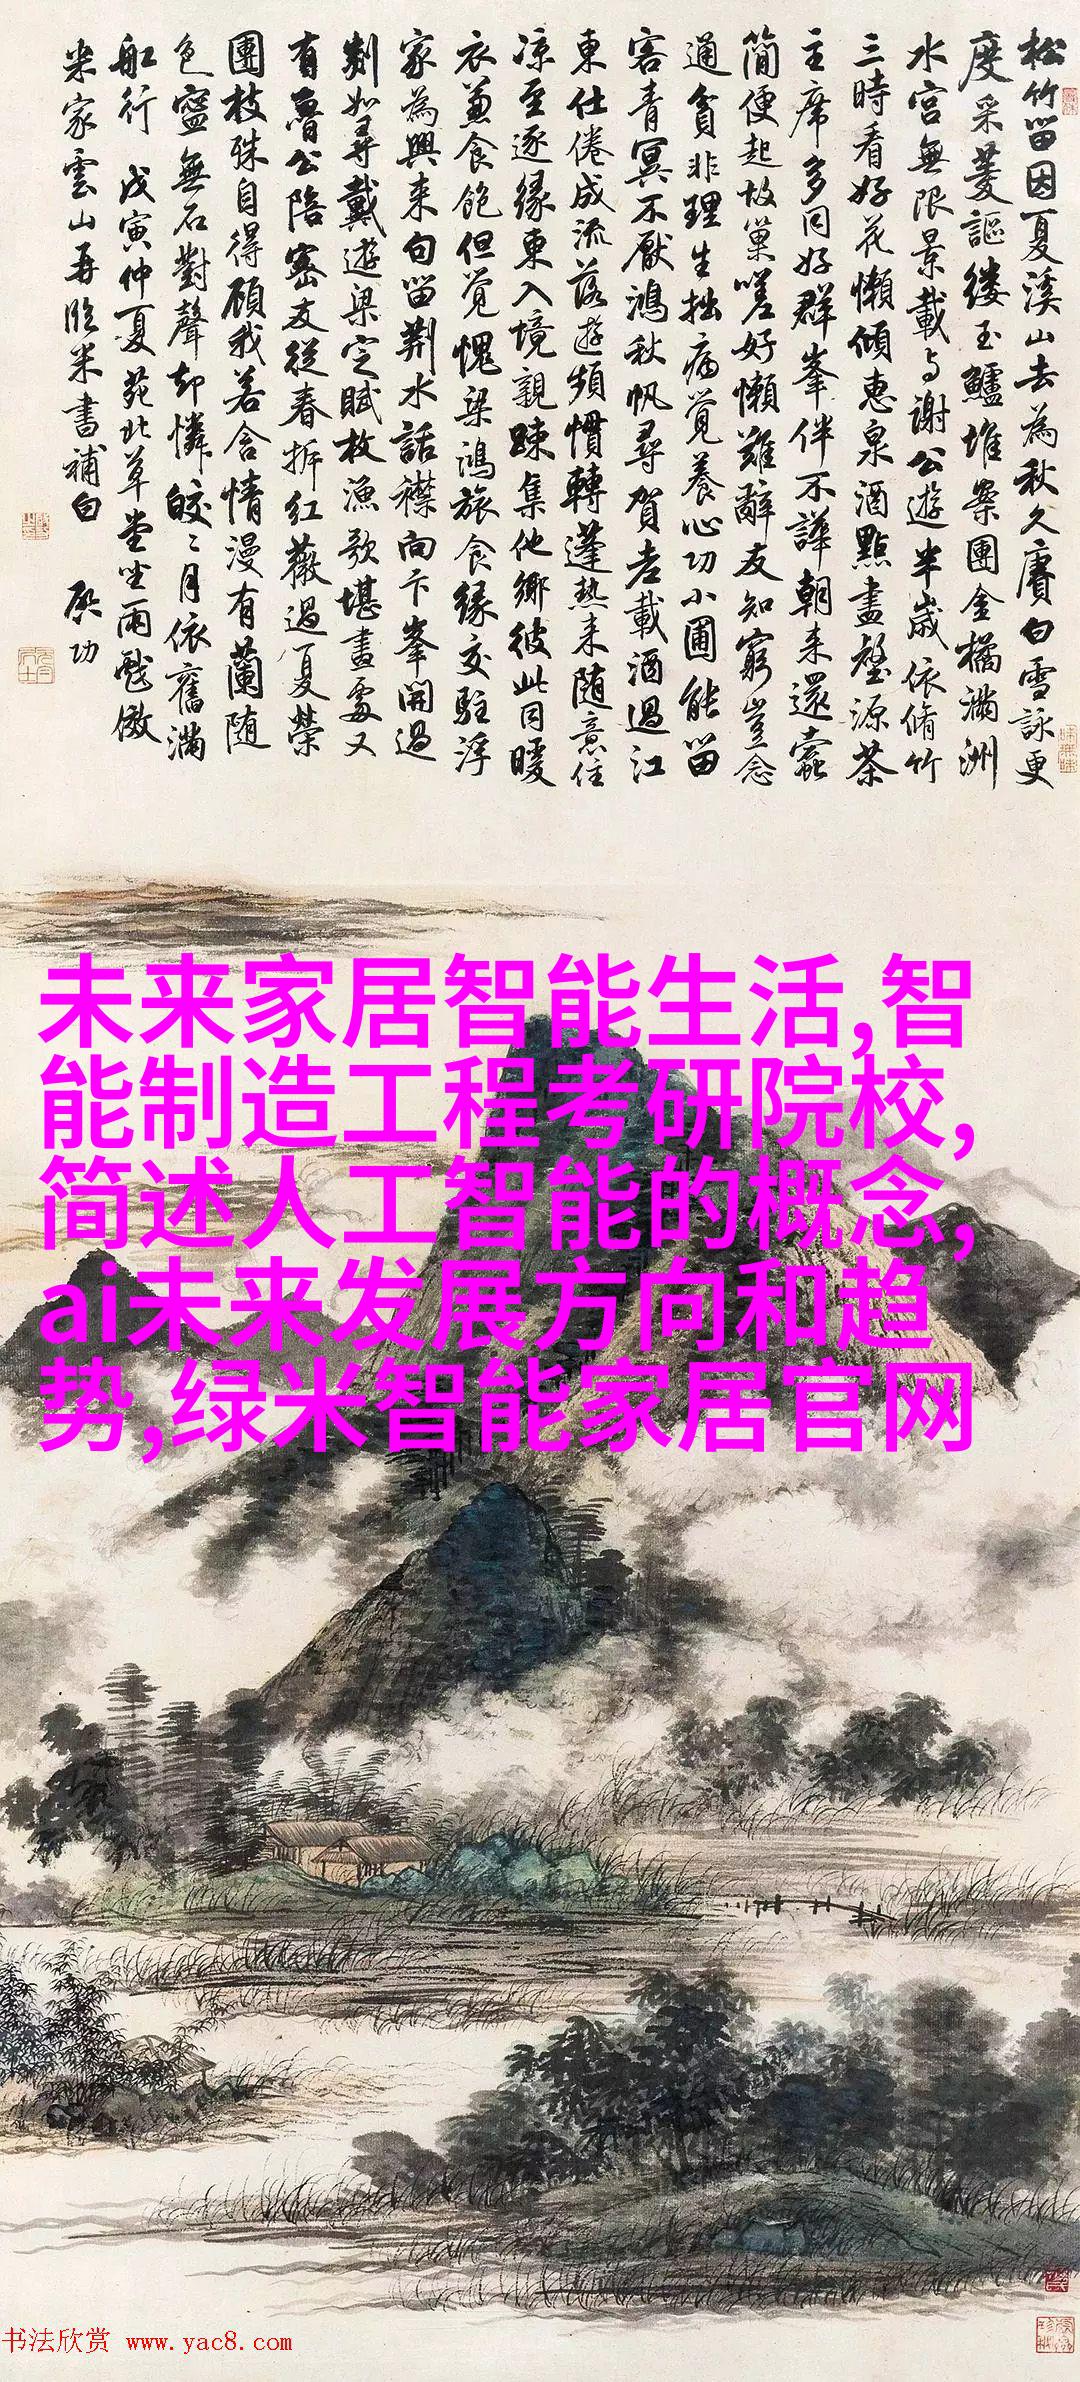 松竹留因夏溪山去为秋久赓白雪詠更
度采菱謳縷玉鱸堆案團金橘滿洲
水宫無限景載与謝公遊半歲依脩竹
三時看好花懶傾惠泉酒點盡壑源茶
主席多同好群峯伴不譁朝来還蠹
簡便起故巢嗟好懶難辭友知窮豈念
通貧非理生拙病覺養心功小圃能留
客青冥不厭鴻秋帆尋賀老載酒過江
東仕倦成流落遊頻慣轉蓬熱来随意住
凉至逐緣東入境親踈集他鄉彼此同暖
衣兼食飽但覺愧梁鴻旅食緣交駐浮
家為興来句留荆水話襟向卞峯開過
剡如尋戴遊梁定賦枚漁歌堪畫處又
有魯公陪密友從春拆紅薇過夏榮
團枝殊自得顧我若含情漫有蘭随
色寧無石對聲却憐皎〻月依舊滿
舡行 戊寅仲夏苑北草堂坐雨戲倣
米家雲山再臨米書補白 啟功
未来家居智能生活,智
能制造工程考研院校,
简述人工智能的概念,
ai未来发展方向和趋
势,绿米智能家居官网
书法欣赏 www.yac8.com